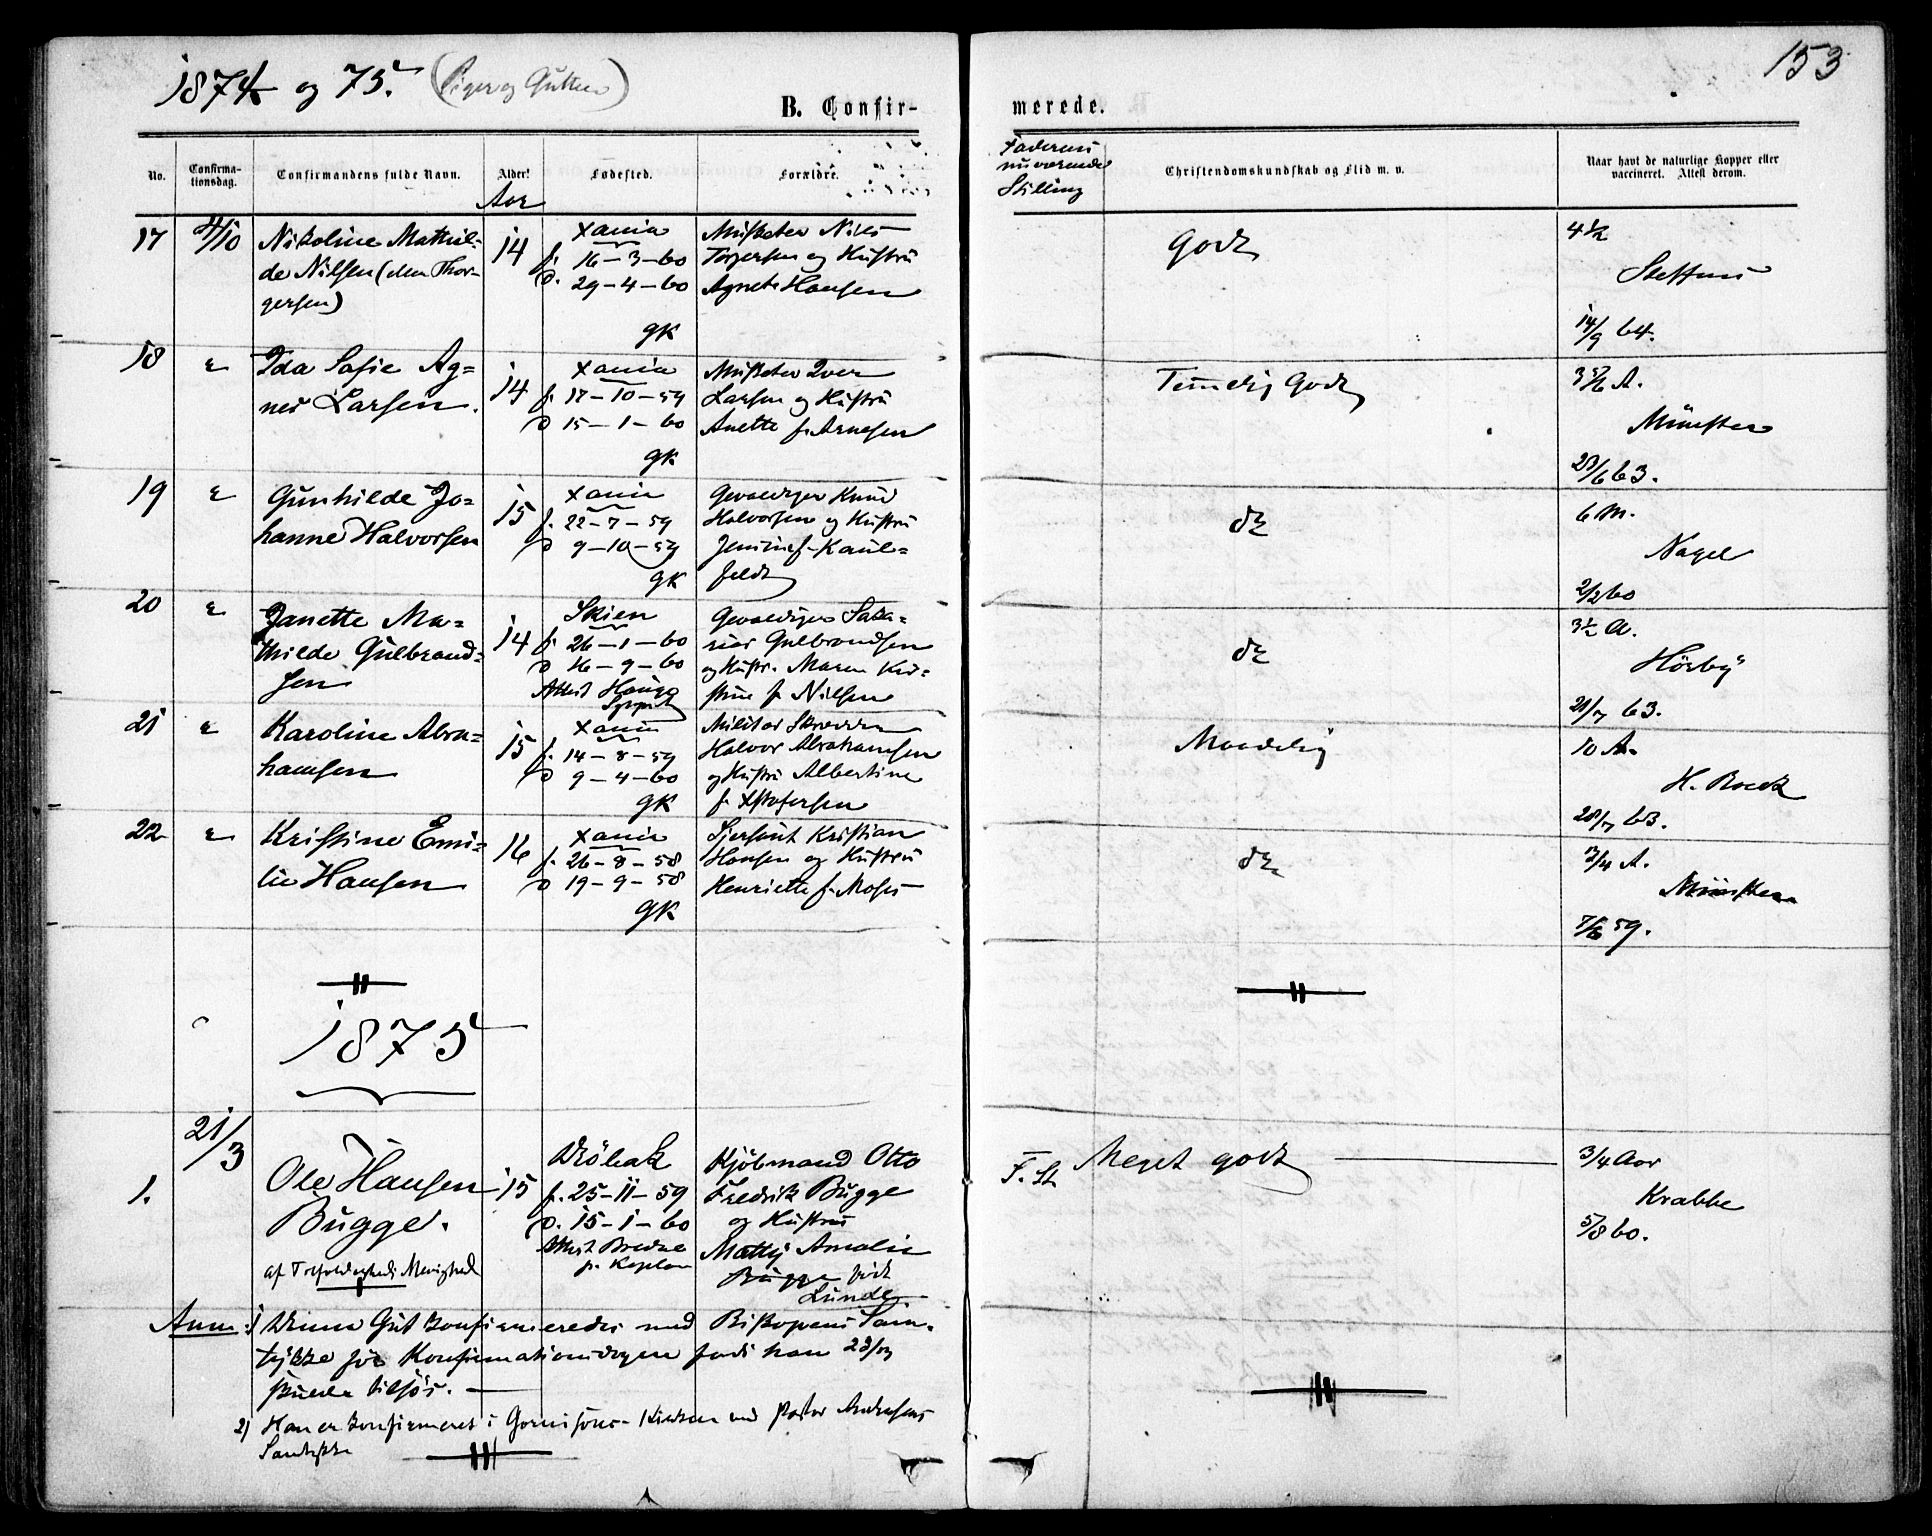 1874 og 75. (Piger og Gutter)
153
B. Confir-
merede.
No.
Confirma-
tionsdag.
Confirmandens fulde Navn.
Alder!
Aar
Fødested.
Forældre.
Faderens
nuværende
Stilling
Christendomskundskab og Flid m. v.
Naar havt de naturlige Kopper eller
vaccineret. Attest derom.
17
4/10
Nikoline Mathil-
de Nilsen (den Thor-
gersen)
14
Xania
f. 16-3-60
D. 29-4-60
GK
Musketer Niels
Torgersen og Hustru
Agnete Hansen
Godt
4 1/2
Steffens
14/9 64.
18
"
Ida Sofie Ag=
nes Larsen.
14
Xania
f. 17-10-59
D 15-1-60
GK
Musketer Iver
Larsen og Hustru
Anette f. Arnesen
Temelig Godt
3 5/6 A.
Münster
23/6 63.
19
"
Gunhilde Jo=
hanne Halvorsen
15
Xania
f. 22-7-59
D 9-10-59
GK
Gevaldiger Knud
Halvorsen og Hustru
Jensine f. Kaul=
feldt
dt
6 M.
Nagel
2/2 60
20
"
Janette Ma=
thilde Gulbrand=
sen
14
Skien
f. 26-1-60
D 16-9-60
Attest Hauge
Sgprst
Gevaldiger Saka-
rias Gulbrandsen
og Hustr. Maren Kri-
stine f. Nilsen
dt
3 1/2 A.
Hörbÿ
21/7 63.
21
"
Karoline Abra=
hamsen
15
Xania
f. 14-8-59
D 9-4-60
GK
Militær Skrædder
Halvor Abrahamsen
og Hustru Albertine
f. Xstofersen
Maadelig
10 A.
H. Boeck
28/7 63.
22
"
Kristine Emi=
lie Hansen
16
Xania
f. 26-8-58
D 19-9-58
GK
Sjersant Kristian
Hansen og Hustru
Henriette f. Moses
dt
3/4 A.
Münster
7/6 59.
1875
1.
21/3
Ole Hansen
Bugge.
af Trefoldigheds Menighed
15
Dröbak
f. 25-11-59
D. 15-1-60
Attest Bredae
p. Kaplan
Kjöbmand Otto
Fredrik Bugge
og Hustru
Matty Amalie
Bugge født
Lunde.
F. St
Meget godt
3/4 Aar
Krabbe
5/8 60.
Anm: 1) Denne Gut konfirmeredes med Biskopens Sam-
tykke før Konfirmationsdagen fordi han 22/3
skulde tilsös.
2) Han er konfirmeret i Garnisons-Kirken med Pastor Andresens
Samtykke